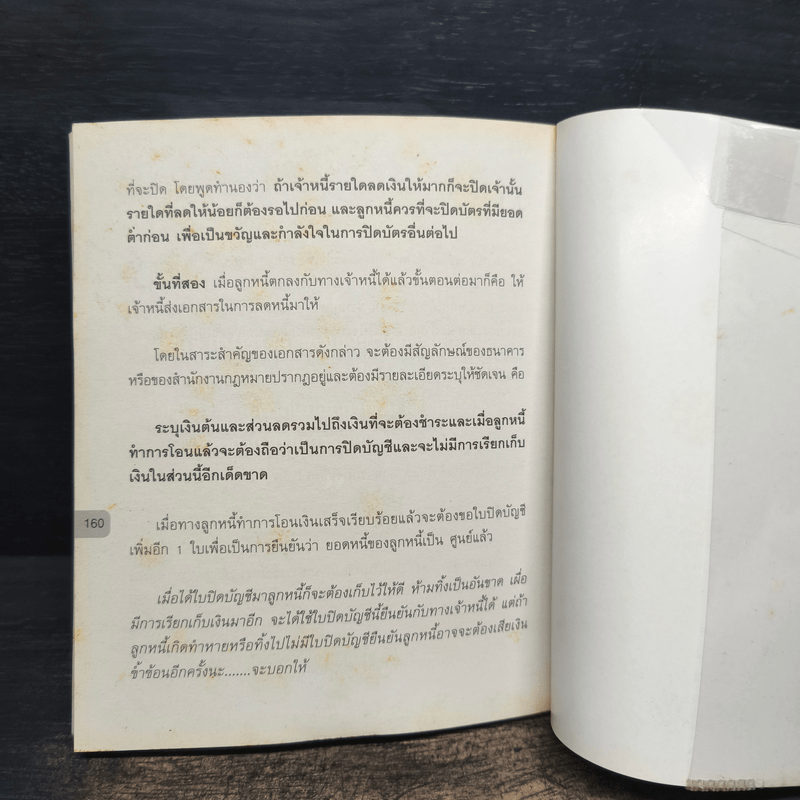 ที่จะปิด โดยพูดทำนองว่า ถ้าเจ้าหนี้รายใดลดเงินให้มากก็จะปิดเจ้านั้น
รายใดที่ลดให้น้อยก็ต้องรอไปก่อน และลูกหนี้ควรที่จะปิดบัตรที่มียอด
ต่ำก่อน เพื่อเป็นขวัญและกำลังใจในการปิดบัตรอื่นต่อไป
ขั้นที่สอง เมื่อลูกหนี้ตกลงกับทางเจ้าหนี้ได้แล้วขั้นตอนต่อมาก็คือ ให้
เจ้าหนี้ส่งเอกสารในการลดหนี้มาให้
โดยในสาระสำคัญของเอกสารดังกล่าว จะต้องมีสัญลักษณ์ของธนาคาร
หรือของสำนักงานกฎหมายปรากฏอยู่และต้องมีรายละเอียดระบุให้ชัดเจน คือ
ระบุเงินต้นและส่วนลดรวมไปถึงเงินที่จะต้องชำระและเมื่อลูกหนี้
ทำการโอนแล้วจะต้องถือว่าเป็นการปิดบัญชีและจะไม่มีการเรียกเก็บ
เงินในส่วนนี้อีกเด็ดขาด
160
เมื่อทางลูกหนี้ทำการโอนเงินเสร็จเรียบร้อยแล้วจะต้องขอใบปิดบัญชี
เพิ่มอีก 1 ใบเพื่อเป็นการยืนยันว่า ยอดหนี้ของลูกหนี้เป็น ศูนย์แล้ว
เมื่อได้ใบปิดบัญชีมาลูกหนี้ก็จะต้องเก็บไว้ให้ดี ห้ามทิ้งเป็นอันขาด เผื่อ
มีการเรียกเก็บเงินมาอีก จะได้ใช้ใบปิดบัญชีนี้ยืนยันกับทางเจ้าหนี้ได้ แต่ถ้า
ลูกหนี้เกิดทำหายหรือทิ้งไปไม่มีใบปิดบัญชียืนยันลูกหนี้อาจจะต้องเสียเงิน
ซ้ำซ้อนอีกครั้งนะ.......จะบอกให้